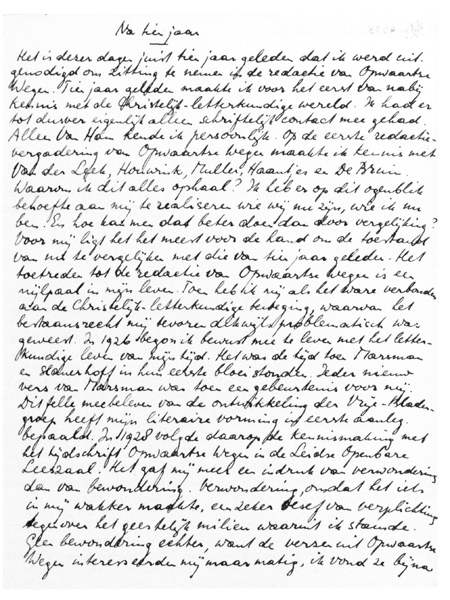 Na tien jaar
Het is dezer dagen juist tien jaar geleden dat ik werd uit-
genodigd om zitting te nemen in de redactie van Opwaartsche
Wegen. Tien jaar geleden maakte ik voor het eerst van nabij
kennis met de Christelijk-letterkundige wereld. Ik had er
tot dusver eigenlijk alleen schriftelijk contact mee gehad.
Alleen Van Ham kende ik persoonlijk. Op de eerste redactie-
vergadering van Opwaartsche Wegen maakte ik kennis met
Van der Leek, Houwink, Mulder, Haantjes en De Bruin.
Waarom ik dit alles ophaal? Ik heb er op dit ogenblik
behoefte aan mij te realiseren wie wij nu zijn, wie ik nu
ben. En hoe kan men dat beter doen dan door vergelijking?
Voor mij ligt het het meest voor de hand om de toestand
van nu te vergelijken met die van tien jaar geleden. Het
toetreden tot de redactie van Opwaartsche Wegen is een
mijlpaal in mijn leven. Toen heb ik mij als het ware verbonden
aan de Christelijk-letterkundige beweging, waarvan het
bestaansrecht mij tevoren dikwijls problematisch was
geweest. In 1926 begon ik bewust mee te leven met het letter-
kundige leven van mijn tijd. Het was de tijd toen Marsman
en Slauerhoff in hun eerste bloei stonden. Ieder nieuw
vers van Marsman was toen een gebeurtenis voor mij.
Dit felle meebeleven van de ontwikkeling der Vrije-Bladen-
groep heeft mijn literaire vorming in eerste aanleg
bepaald. In 1928 volgde daarop de kennismaking met
het tijdschrift Opwaartsche Wegen in de Leidse Openbare
Leeszaal. Het gaf mij meer een indruk van verwondering
dan van bewondering. Verwondering, omdat het iets
in mij wakker maakte, een zeker besef van verplichting
tegenover het geestelijk milieu waaruit ik stamde.
Geen bewondering echter, want de verzen uit Opwaartsche
Wegen interesseerden mij maar matig, ik vond ze bijna